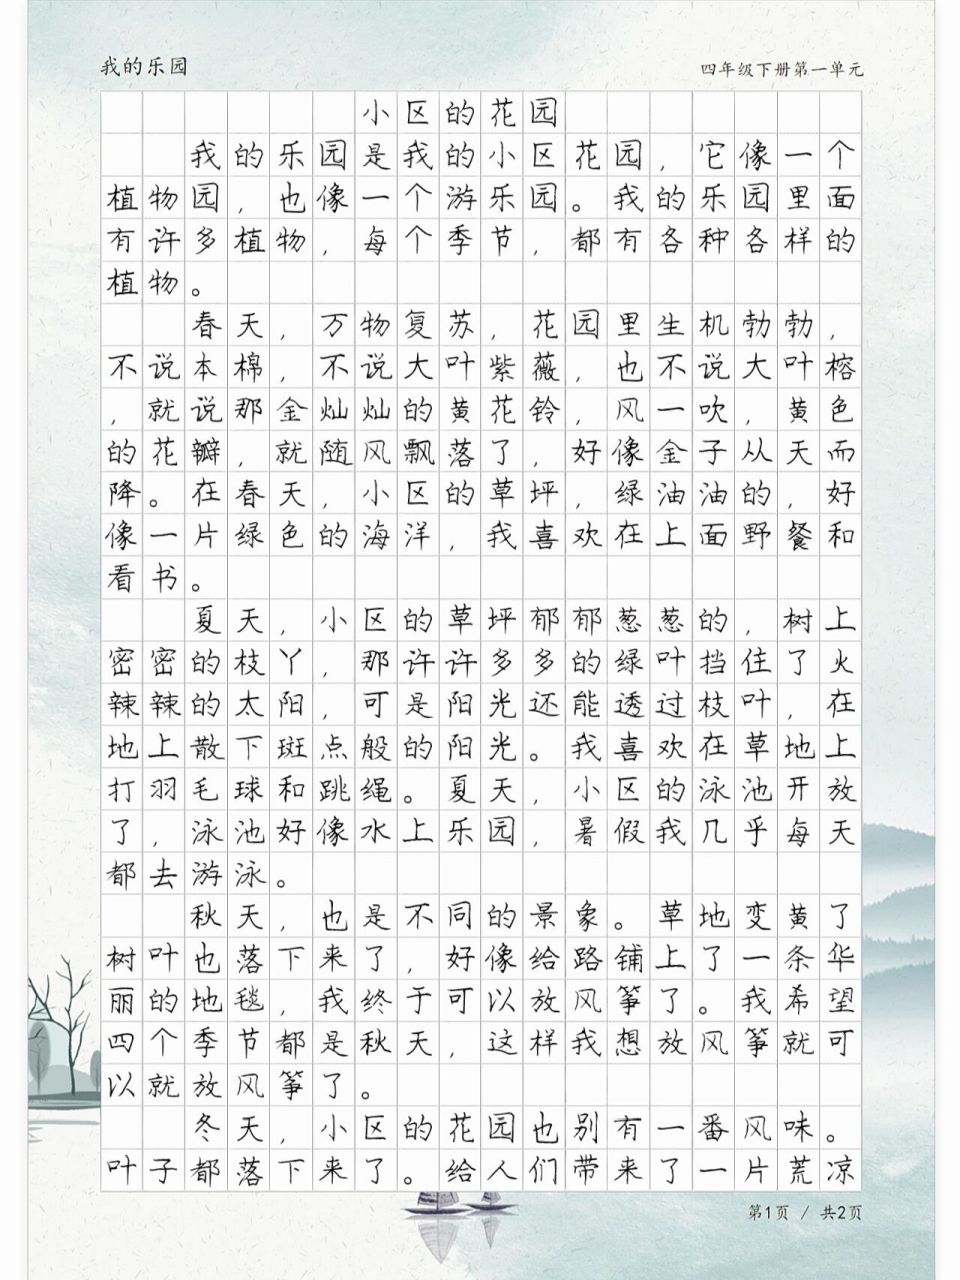 我的乐园
四年级下册第一单元
小区的花园
我的乐园是我的小区花园，它像一个
植物园，也像一个游乐园。我的乐园里面
有许多植物，每个季节，都有各种各样的
植物。
春天，万物复苏，花园里生机勃勃，
不说本棉，不说大叶紫薇，也不说大叶榕
，就说那金灿灿的黄花铃，风一吹，黄色
的花瓣，就随风飘落了，好像金子从天而
降。在春天，小区的草坪，绿油油的，好
像一片绿色的海洋，我喜欢在上面野餐和
看书。
夏天，小区的草坪郁郁葱葱的，树上
密密的枝丫，那许许多多的绿叶挡住了火
辣辣的太阳，可是阳光还能透过枝叶，在
地上散下斑点般的阳光。我喜欢在草地上
打羽毛球和跳绳。夏天，小区的泳池开放
了，泳池好像水上乐园，暑假我几乎每天
都去游泳。
秋天，也是不同的景象。草地变黄了
树叶也落下来了，好像给路铺上了一条华
丽的地毯，我终于可以放风筝了。我希望
四个季节都是秋天，这样我想放风筝就可
以就放风筝了。
冬天，小区的花园也别有一番风味。
叶子都落下来了。给人们带来了一片荒凉
第1页 / 共2页